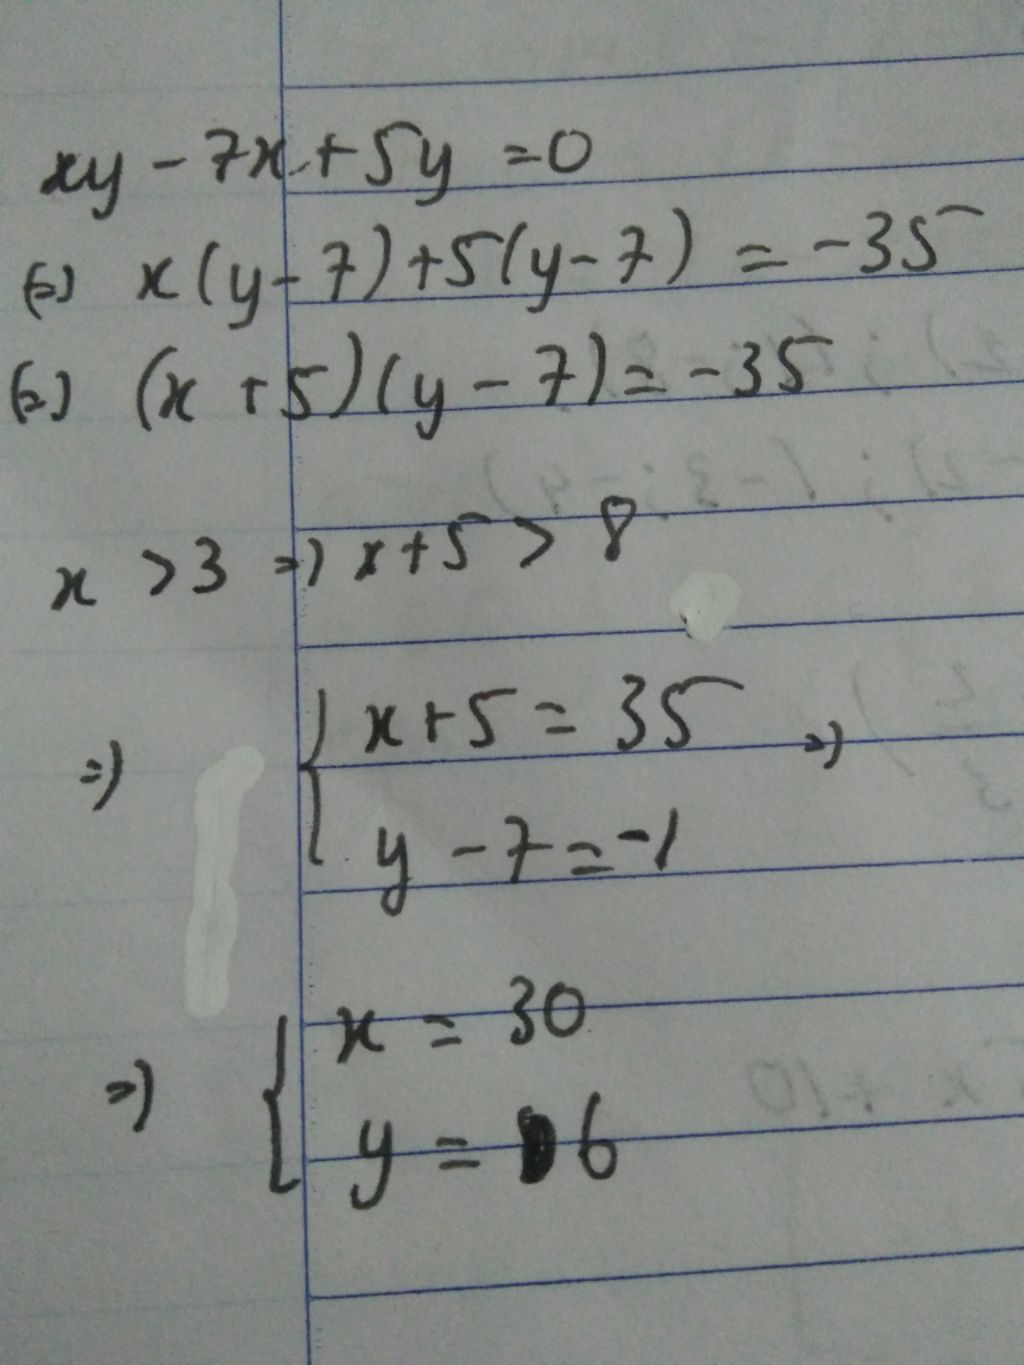 xy - 7x + 5y = 0
(=) x(y-7)+5(y-7) = -35
(=) (x+5)(y-7) = -35
x > 3 =) x+5 > 8
=) { x+5 = 35 =)
y - 7 = -1
=) { x = 30
y = 6